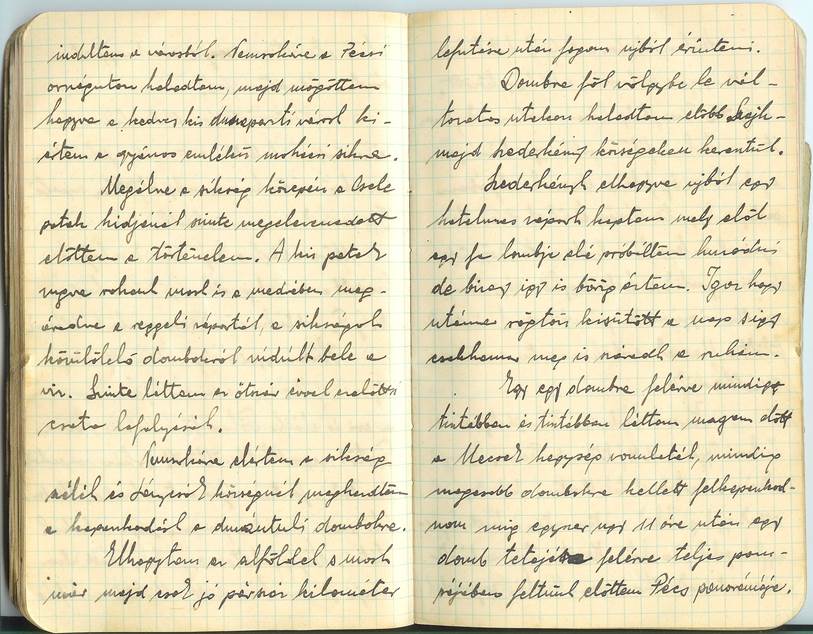 indultam a városból. Nemsokára a Pécsi
országuton haladtam, majd mögöttem
hagyva a kedves kis dunaparti várost ki-
értem a gyászos emlékü mohácsi síkra.
Megállva a síkság közepén a Csele
patak hidjánál szinte megelevenedett
előttem a történelem. A kis patak
ugyan rohant most is a medrében meg-
áradva a reggeli záportól, a síkságot
körülölelő dombokról zúdúlt bele a
víz. Szinte láttam az ötszáz évvel ezelőtti
csata lefolyását.
Nemsokára elértem a síkság
szélét és Lánycsók községnél megkezdtem
a kapaszkodást a dunántuli dombokra.
Elhagytam az alföldet s most
már majd csak jó párszáz kilométer
lefutása után fogom ujból érinteni.
Dombra föl völgybe le vál-
tozatos utakon haladtam előbb
majd Szederkény községeken keresztül.
Szederkényt elhagyva ujból egy
hatalmas záport kaptam mely elől
egy fa lombja alá próbáltam huzódni
de bizony így is bőrig áztam. Igaz hogy
utánna rögtön kisütött a nap s így
csakhamar meg is száradt a ruhám.
Egy egy dombra felérve mindig
tisztábban és tisztábban láttam magam előtt
a Mecsek hegység vonulatát, mindig
magasabb dombokra kellett felkapaszkod-
nom míg egyszer ugy 11 óra után egy
domb tetejére felérve teljes pom-
pájában feltünt előttem Pécs panorámája.